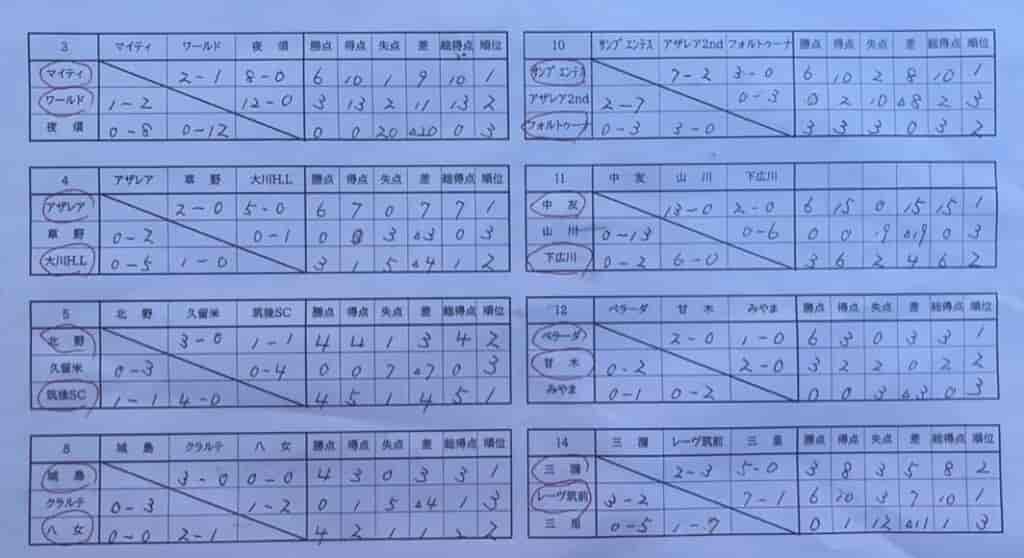 3 マイティ ワールド 夜須 勝点 得点 失点 差 総得点 順位
マイティ 2-1 8-0 6 10 1 9 10 1
ワールド 1-2 12-0 3 13 2 11 13 2
夜須 0-8 0-12 0 0 20 △20 0 3
10 サンプエンテス アザレア2nd フォルトゥーナ 勝点 得点 失点 差 総得点 順位
サンプエンテス 7-2 3-0 6 10 2 8 10 1
アザレア2nd 2-7 0-3 0 2 10 △8 2 3
フォルトゥーナ 0-3 3-0 3 3 3 0 3 2
4 アザレア 草野 大川H.L 勝点 得点 失点 差 総得点 順位
アザレア 2-0 5-0 6 7 0 7 7 1
草野 0-2 0-1 0 0 3 △3 0 3
大川H.L 0-5 1-0 3 1 5 △4 1 2
11 中友 山川 下広川
中友 13-0 2-0 6 15 0 15 15 1
山川 0-13 0-6 0 0 19 △19 0 3
下広川 0-2 6-0 3 6 2 4 6 2
5 北野 久留米 筑後SC 勝点 得点 失点 差 総得点 順位
北野 3-0 1-1 4 4 1 3 4 2
久留米 0-3 0-4 0 0 7 △7 0 3
筑後SC 1-1 4-0 4 5 1 4 5 1
12 ベラーダ 甘木 みやま 勝点 得点 失点 差 総得点 順位
ベラーダ 2-0 1-0 6 3 0 3 3 1
甘木 0-2 2-0 3 2 2 0 2 2
みやま 0-1 0-2 0 0 3 △3 0 3
8 城島 クラルテ 八女 勝点 得点 失点 差 総得点 順位
城島 3-0 0-0 4 3 0 3 3 1
クラルテ 0-3 1-2 0 1 5 △4 1 3
八女 0-0 2-1 4 2 1 1 2 2
14 三潴 レーヴ筑前 三里 勝点 得点 失点 差 総得点 順位
三潴 2-3 5-0 3 8 3 5 8 2
レーヴ筑前 3-2 7-1 6 10 3 7 10 1
0-5 1-7 0 1 12 △11 1 3